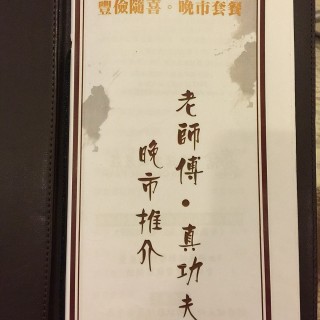 豐儉隨喜。晚市套餐
老師傅·真功夫
晚市推介